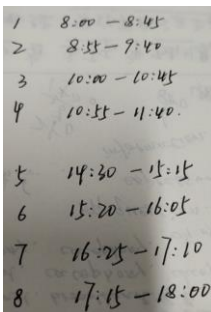 1 8:00 - 8:45
2 8:55 - 9:40
3 10:00 - 10:45
4 10:55 - 11:40.
5 14:30 - 15:15
6 15:20 - 16:05
7 16:25 - 17:10
8 17:15 - 18:00